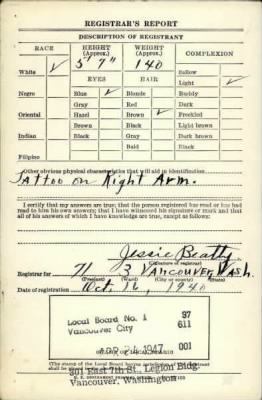 REGISTRAR'S REPORT
DESCRIPTION OF REGISTRANT
RACE HEIGHT (Approx.) WEIGHT (Approx.) COMPLEXION
5' 7" 140
White ✓ Sallow
EYES HAIR Light ✓
Negro Blue ✓ Blonde Ruddy
Gray Red Dark
Oriental Hazel Brown ✓ Freckled
Brown Black Light brown
Indian Black Gray Dark brown
Bald Black
Filipino
Other obvious physical characteristics that will aid in identification
Tattoo on Right Arm.
I certify that my answers are true; that the person registered has read or has had
read to him his own answers; that I have witnessed his signature or mark and that
all of his answers of which I have knowledge are true, except as follows:
Jessie Beatty
(Signature of registrar)
Registrar for 71 3 Vancouver Wash.
(Precinct) (Ward) (City or county) (State)
Date of registration Oct. 16, 1940
Local Board No. 1 97
Vancouver City 611
APR 24 1947 001
(The stamp of the Local Board having jurisdiction of the registrant
shall be placed in the above space.)
301 East 7th St. Legion Bldg.
Vancouver, Washington